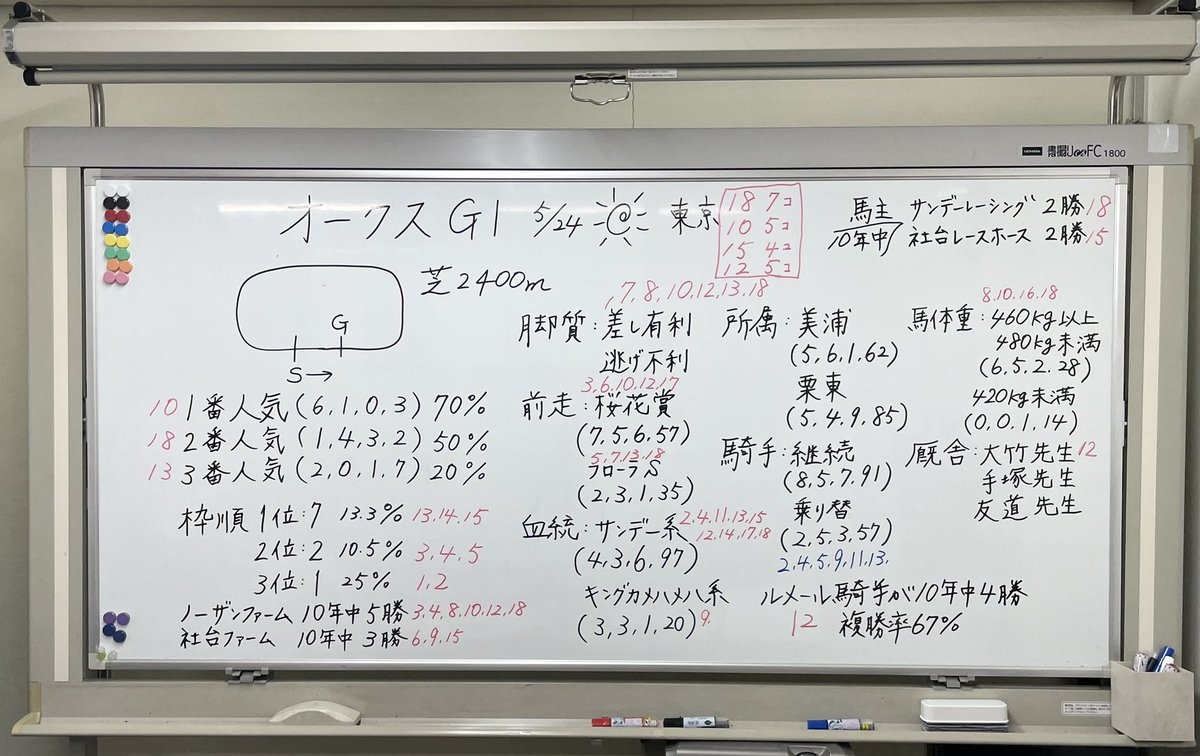 書撮りU FC 1800
オークス G1 5/24 東京
18 7コ
10 5コ
15 4コ
12 5コ
馬主 サンデーレーシング 2勝 18
10年中 社台レースホース 2勝 15
芝2400m
G
S→
10 1番人気(6,1,0,3) 70%
18 2番人気(1,4,3,2) 50%
13 3番人気(2,0,1,7) 20%
枠順 1位:7 13.3% 13.14.15
2位:2 10.5% 3.4.5
3位:1 25% 1.2
ノーザンファーム 10年中5勝 3,4.8.10.12.18
社台ファーム 10年中 3勝 6.9.15
,7,8,10,12,13,18
脚質:差し有利
逃げ不利
3,6,10,12,17
前走:桜花賞
(7,5,6,57)
5,7,13,18
フローラS
(2,3,1,35)
血統:サンデー系 2,4,11,13,15
12,14,17,18
(4,3,6,97)
キングカメハメハ系
(3,3,1,20) 9.
所属:美浦
(5,6,1,62)
栗東
(5,4,9,85)
騎手:継続
(8,5,7,91)
乗り替
(2,5,3,57)
2,4,5,9,11,13,
ルメール騎手が10年中4勝
12 複勝率67%
8,10.16.18
馬体重:460kg以上
480kg未満
(6,5,2,28)
420kg未満
(0,0,1,14)
厩舎:大竹先生 12
手塚先生
友道先生